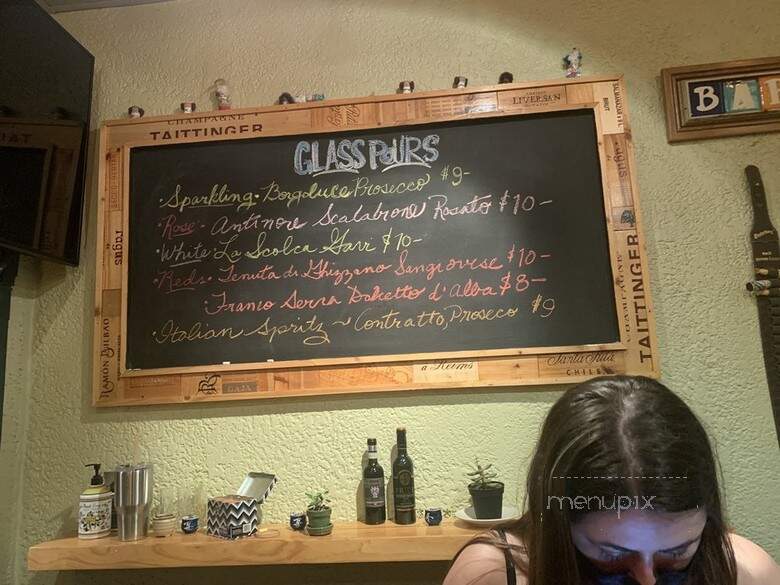 CHAMPAGNE
TAITTINGER
LIVERSAN
BRUT
BA
GLASS POURS
• Sparkling - Borgoluce Prosecco $9-
• Rose - Antinore Scalabrone Rosato $10-
• White - La Scolca Gavi $10-
• Reds - Tenuta di Ghizzano Sangiovese $10-
• Franco Serra Dolcetto d'Alba $8-
• Italian Spritz ~ Contratto, Proseco $9
RAMÓN BILBAO
CHAMPAGNE
TAITTINGER
GAJA
à Reims
Santa Rita
CHILE
menupix